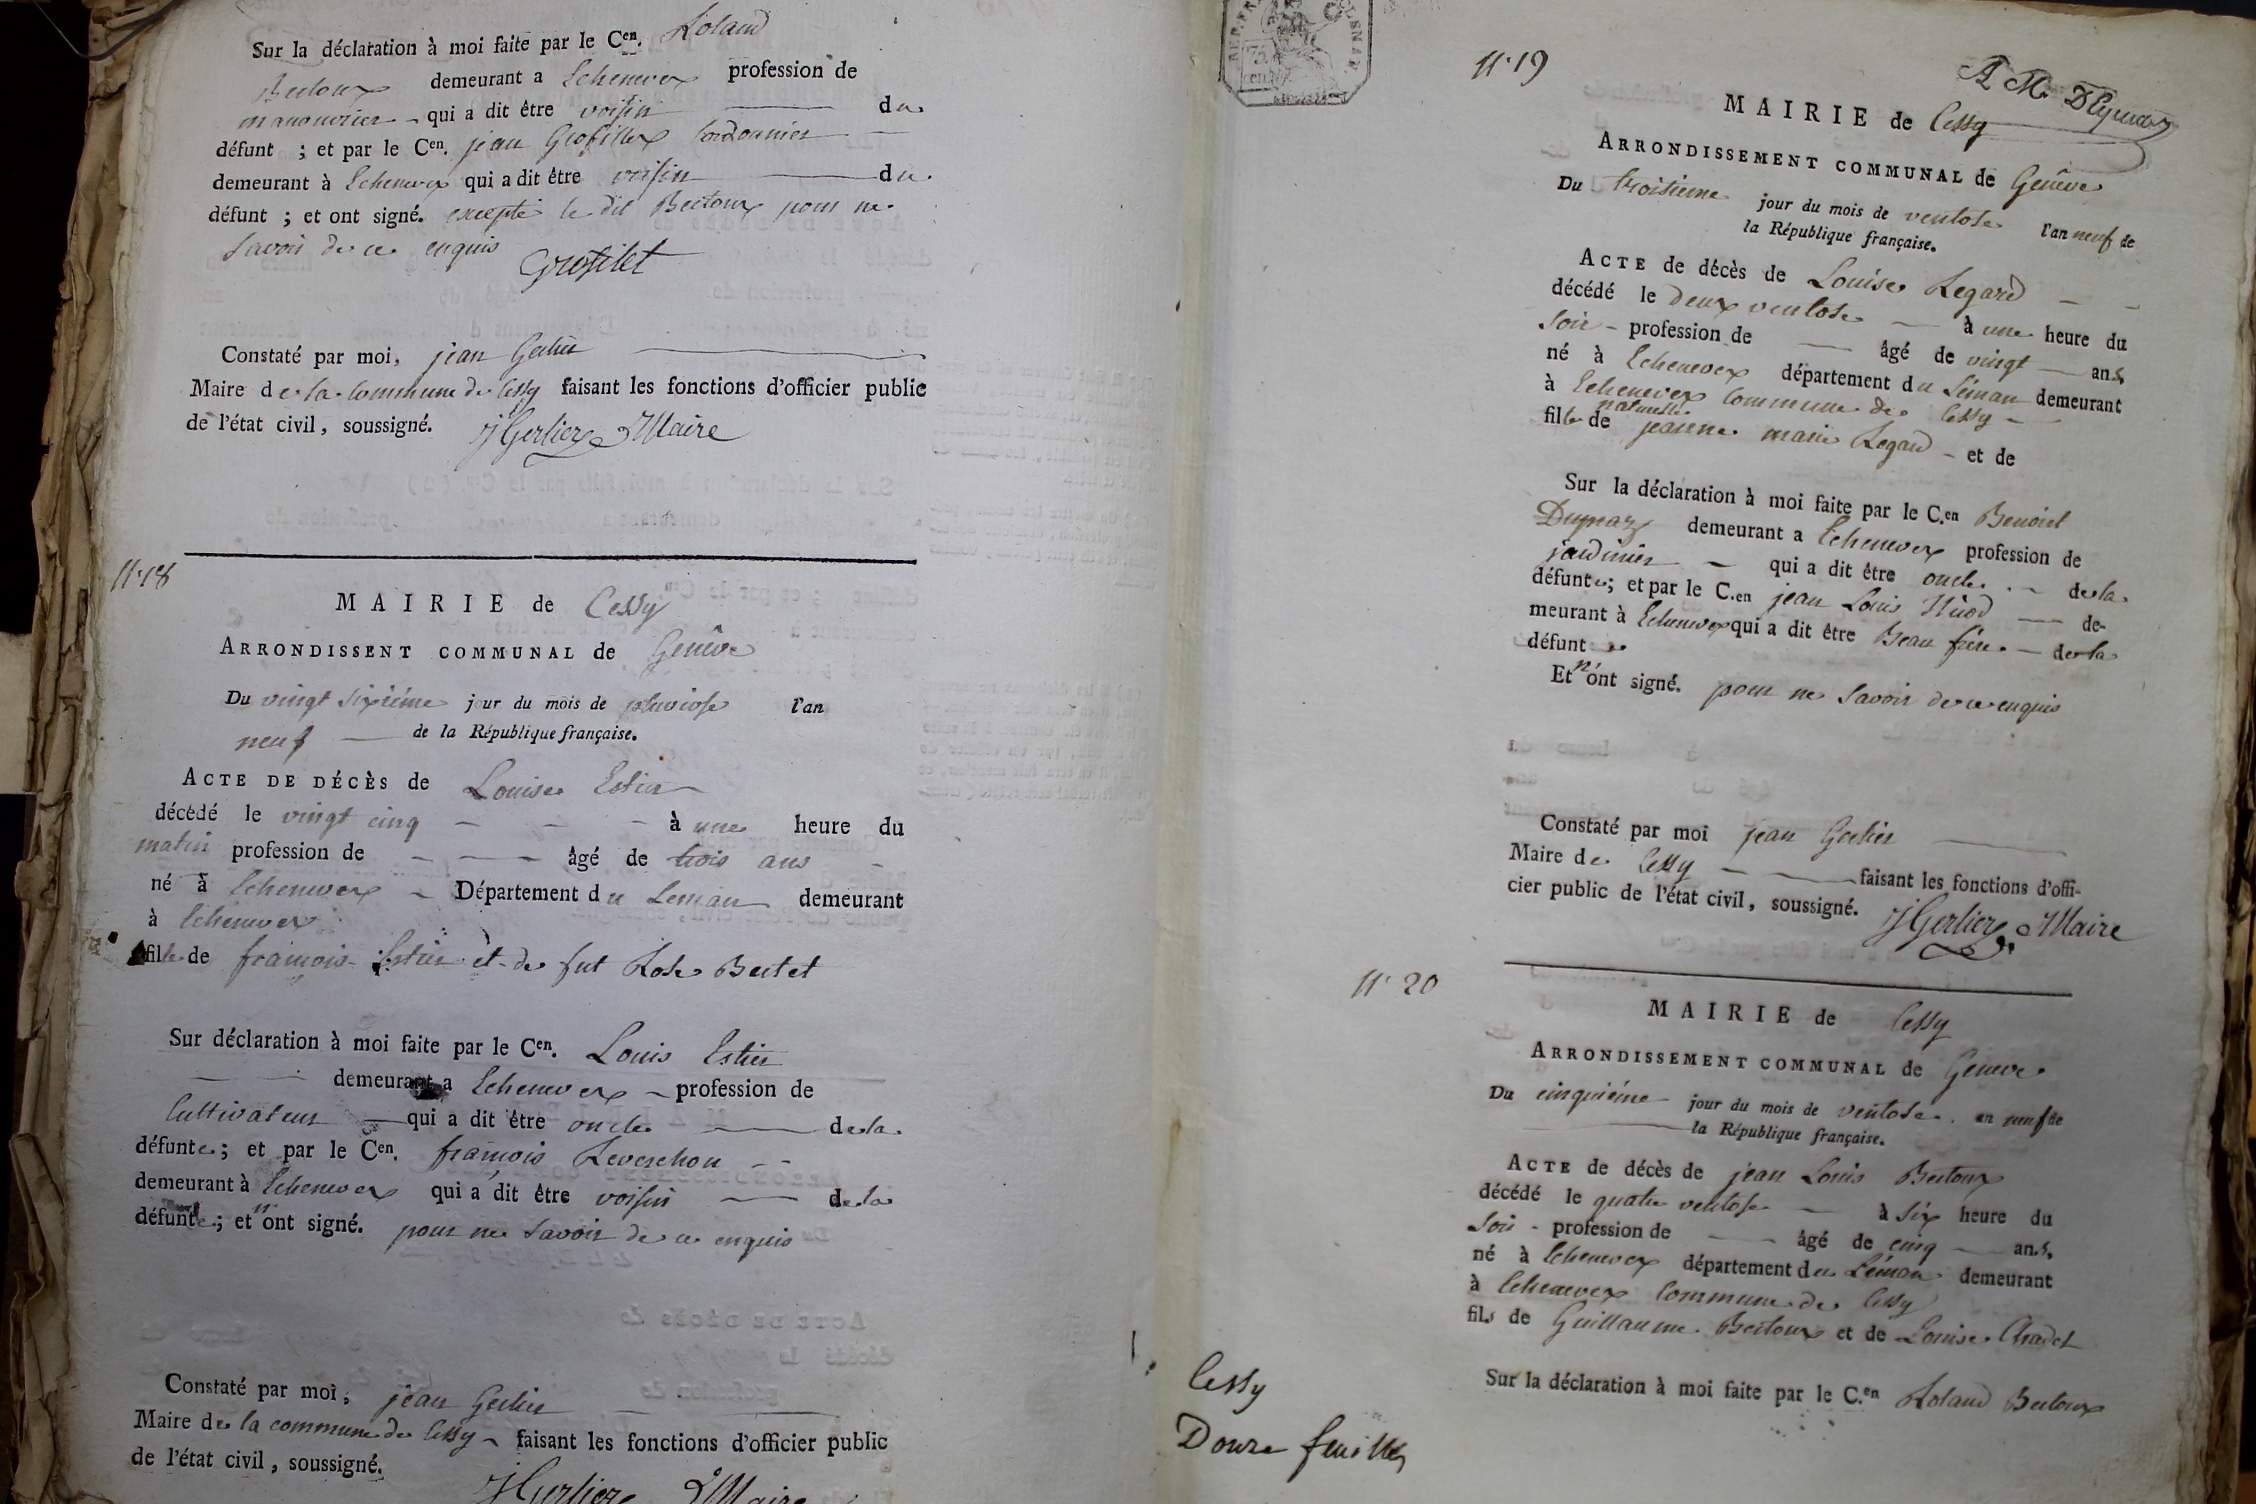 Sur la déclaration à moi faite par le Cen. Roland
Bertoux demeurant a Echenevex profession de
manouvrier - qui a dit être voisin du
défunt ; et par le Cen. jean Grosfillex cordonnier
demeurant à Echenevex qui a dit être voisin du
défunt ; et ont signé. excepté le dit Bertoux pour ne
savoir de ce enquis
Grosfilet
Constaté par moi, jean Gerlier
Maire de la commune de Cessy faisant les fonctions d'officier public
de l'état civil, soussigné. J Gerlier Maire
N° 18
MAIRIE de Cessy
ARRONDISSENT COMMUNAL de Genêve
Du vingt sixiéme jour du mois de pluviose l'an
neuf de la République française.
ACTE DE DÉCÈS de Louise Estier
décédé le vingt cinq à une heure du
matin profession de âgé de trois ans
né à Echenevex - Département du Leman demeurant
à Echenevex
fille de françois Estier et de fut Rose Bertet
Sur déclaration à moi faite par le Cen. Louis Estier
demeurant a Echenevex - profession de
Cultivateur qui a dit être oncle de la
défunte ; et par le Cen. françois Reverchon
demeurant à Echenevex qui a dit être voisin de la
défunte ; et n'ont signé. pour ne savoir de ce enquis
Constaté par moi, jean Gerlier
Maire de la commune de Cessy - faisant les fonctions d'officier public
de l'état civil, soussigné.
J Gerlier Maire
N° 19
MAIRIE de Cessy
ARRONDISSEMENT COMMUNAL de Genêve
Du troisieme jour du mois de ventose l'an neuf de
la République française.
ACTE de décès de Louise Regard
décédé le deux ventose à une heure du
soir - profession de âgé de vingt ans
né à Echenevex département du Léman demeurant
à Echenevex Commune de Cessy
naturelle
fille de jeanne marie Regard - et de
Sur la déclaration à moi faite par le C.en Benoiet
demeurant a Echenevex profession de
jardinier qui a dit être oncle de la
défunte ; et par le C.en jean Louis de-
meurant à Echenevex qui a dit être Beau frere de la
défunte
Et n'ont signé. pour ne savoir de ce enquis
Constaté par moi jean Gerlier
Maire de Cessy faisant les fonctions d'offi-
cier public de l'état civil, soussigné. J Gerlier Maire
N° 20
MAIRIE de Cessy
ARRONDISSEMENT COMMUNAL de Geneve
Du cinquiéme jour du mois de ventose an neuf de
la République française.
ACTE de décès de jean Louis Bertoux
décédé le quatre ventose à six heure du
soir - profession de âgé de cinq ans,
né à Echenevex département du Léman demeurant
à Echenevex Commune de Cessy
fils de Guillaume Bertoux et de Louise
Sur la déclaration à moi faite par le C.en Roland Bertoux
Cessy
Douze feuilles